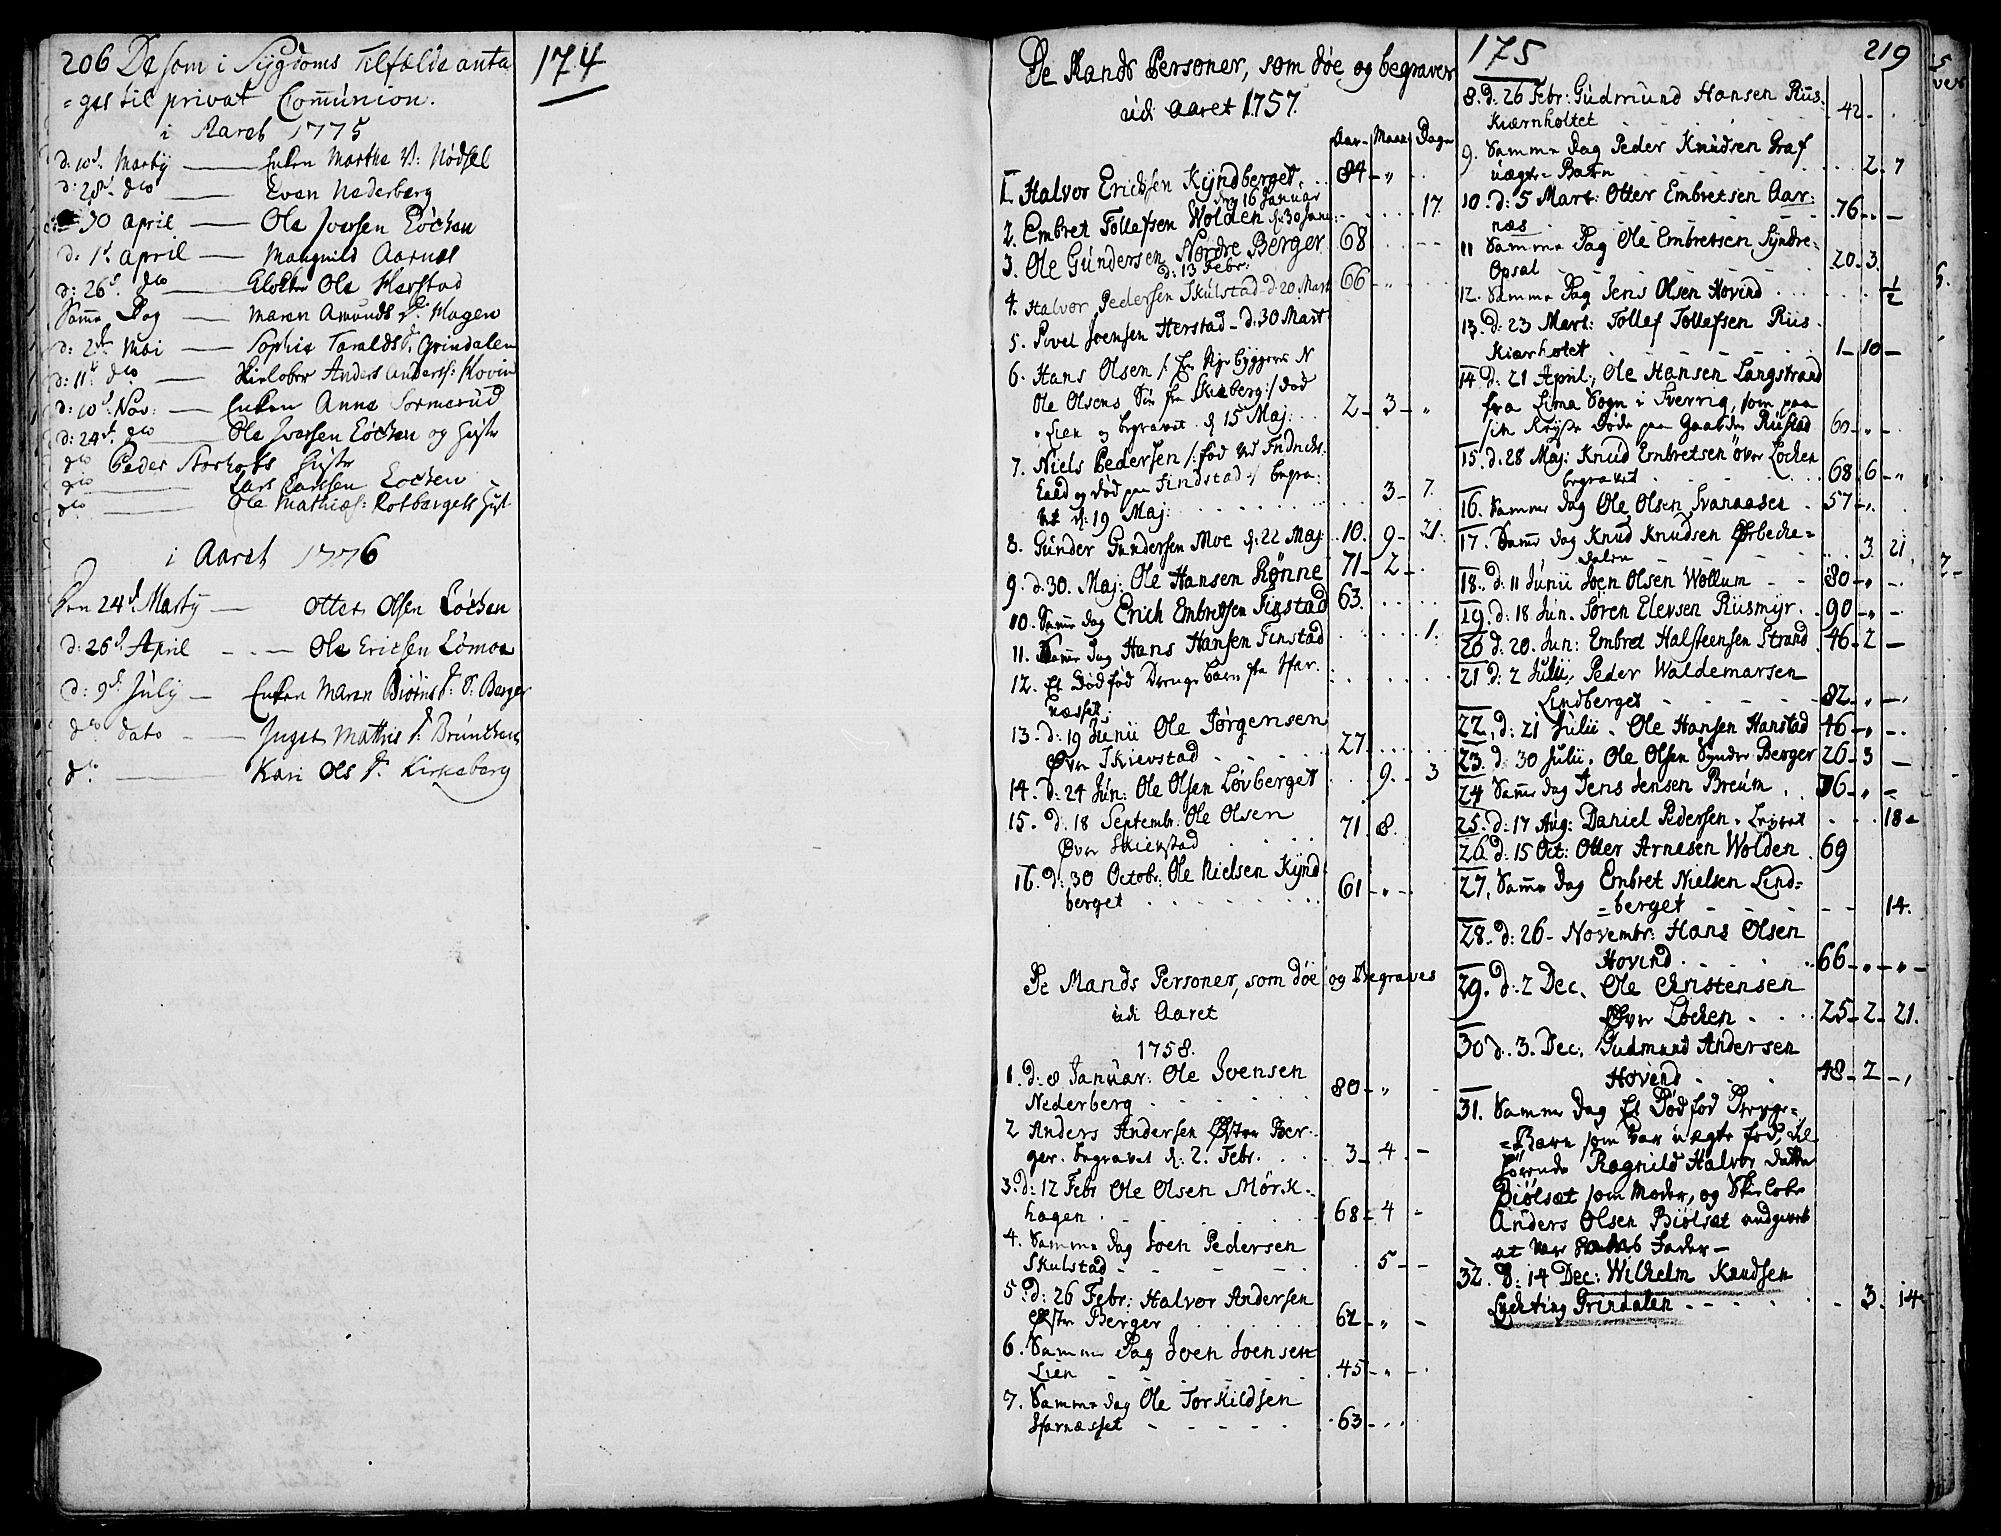 206 De som i Sygdoms Tilfælde anta
=ges til privat Com̅union.
i Aaret 1775
d: 10d. Martÿ — Enken Marthe N: Nødsel
d: 28d. dto — Even Nederberg
30 April — Ole Iversen Løchen
d. 1d. April — Mangnild Aarnæs
d: 26d. dto — Ole Herstad
Sam̅e Dag — Maren Amunds D: Hagen
d: 2d. Mai — Sophie Taralds D: Grindalen
d: 11d. dto — Anders Anders: Hovin
d: 10d. Nov: — Enken Anne Sormerud
d: 24d. dto — Ole Iversen Løchen og Hustr
dto Peder Hustr
dto — Lars Larsen Lochen
dto — Ole Mathias: Rotbergets Hust
i Aaret 1776
Den 24d. Martÿ — Otter Olsen Løchen
d: 26d. April — Ole Ericksen Lømoe
d: 9d. July — Enken Maren Biörns D: S: Berger
dto dato — Inger Mathis D: Brunchen
do — Kari Ols D. Kirkeberg
174
De Mands Personer, som döe og begraves
udi Aaret 1757.
Aar Maan Dage
1. Halvor Ericksen Kyndberget 84 - "
den 16 Januar
2. Embret Tollefsen Wolden d: 30 Janu: 17
3. Ole Gundersen Nordre Berger 68
d: 13 Febr:
4. Halvor Pedersen Skulstad d: 20 Mart 66 - "
5. Povel Joensen Herstad - d: 30 Mart
6. Hans Olsen /: En Nye byggeres N
Ole Olsens Sön fra Skieberg :/ död
i Lien og begravet d 15 Maj: 2 - 3 - "
7. Niels Pedersen /: föd ved Fridrichs:
hald og död paa Findstad :/ begra:
vet d: 19 Maj: 3 - 7.
8. Gunder Gundersen Moe d: 22 Maj 10. 9 - 21.
9. d. 30. Maj: Ole Hansen Rønne 71 - 2 -
10. Sam̅e dag Erich Embretsen Finstad 63.
11. Sam̅e dag Hans Hansen Finstad 1.
12. Et Dödföd Drenge barn fra Star
næsset.
13. d: 19 Junii Ole Jørgensen
Øvre Skievstad 27
14. d: 24 Jun: Ole Olsen Løvberget 9. - 3
15. d. 18 Septembr: Ole Olsen
Øvre Skievstad 71. 8.
16. d: 30 Octobr: Ole Nielsen Kynd
berget 61 - " -
De Mands Personer, som döe og Begraves
udi Aaret
1758.
1. d: 8 Januar: Ole Ivensen
Nederberg 80 - "
2 Anders Andersen Østre Ber:
ger. begravet d: 2. Febr. 3 - 4 -
3. d: 12 Febr Ole Olsen Mörk:
hagen 68 - 4 -
4. Samme dag Joen Pedersen
Skulstad - 5 - -
5. d: 26 Febr: Halvor Andersen
Østre Berger 62 - " -
6. Samme Dag Joen Joensen
Lien 45 - " -
7. Samme dag Ole Torkildsen
Starnæsset 63 -
175
219
8. d: 26 Febr: Gudmund Hansen Rus:
Kiærnholtet 42 -
9. Samme Dag Peder Knudsen Graf
uægte Barn 2 - 7
10. d: 5 Mart: Otter Embretsen Aar:
næs 76 - " -
11 Samme Dag Ole Embretsen Syndre:
Opsal 20 - 3.
12. Samme Dag Jens Olsen Hovind 1/2
13. d: 23 Mart: Tollef Tollefsen Rus:
Kiærholtet 1 - 10 -
14 d. 21 April: Ole Hansen Langstrand
fra Lima Sogn i Sverrig, som paa
sin Reyse döde paa Gaarden Rustad 60 - " -
15. d. 28 Maj: Knud Embretsen över Løchen
begravet 68 6 - "
16. Samme dag Ole Olsen Svenaasen 57 - "
17. Sam̅e dag Knud Knudsen Ørbecke=
dalen 3. 21.
18. d: 11 Junii Joen Olsen Wollum 80 - " -
19. d: 18 Jun. Søren Elevsen Rusmyr. 90 - " -
20 d. 20. Jun: Embret Halsteensen Strand 46 - 2 -
21 d: 2 Julii, Peder Waldemarsen
Lindberget 82 - " -
22. d: 21 Julii. Ole Hansen Hanstad 46 - " -
23. d: 30 Julii. Ole Olsen Syndre Berger 26 - 3 -
24 Sam̅e dag Jens Jensen Breum 76 - " -
25. d: 17 Aug: Daniel Pedersen 18 -
26 d: 15 Oct: Otter Arnesen Wolden 69
27. Sam̅e dag Embret Nielsen Lind=
=berget 14.
28. d: 26 - Novembr: Hans Olsen
Hovind 66 - " - " -
29. d: 2 Dec. Ole Christensen
Øvre Løchen 25 - 2 - 21.
30 d. 3. Dec. Gudmund Andersen
Hovind 48 - 2 -
31. Samme dag Et Dödföd Drenge=
=Barn som var uægte föd, til
hörende Ragnild Halvors datter
Biølset som Moder, og
Anders Olsen Biølset udgivet
at være Barnets Fader -
32. d: 14 Dec: Wilhelm Knudsen
Lychting Grindalen - 3. 14